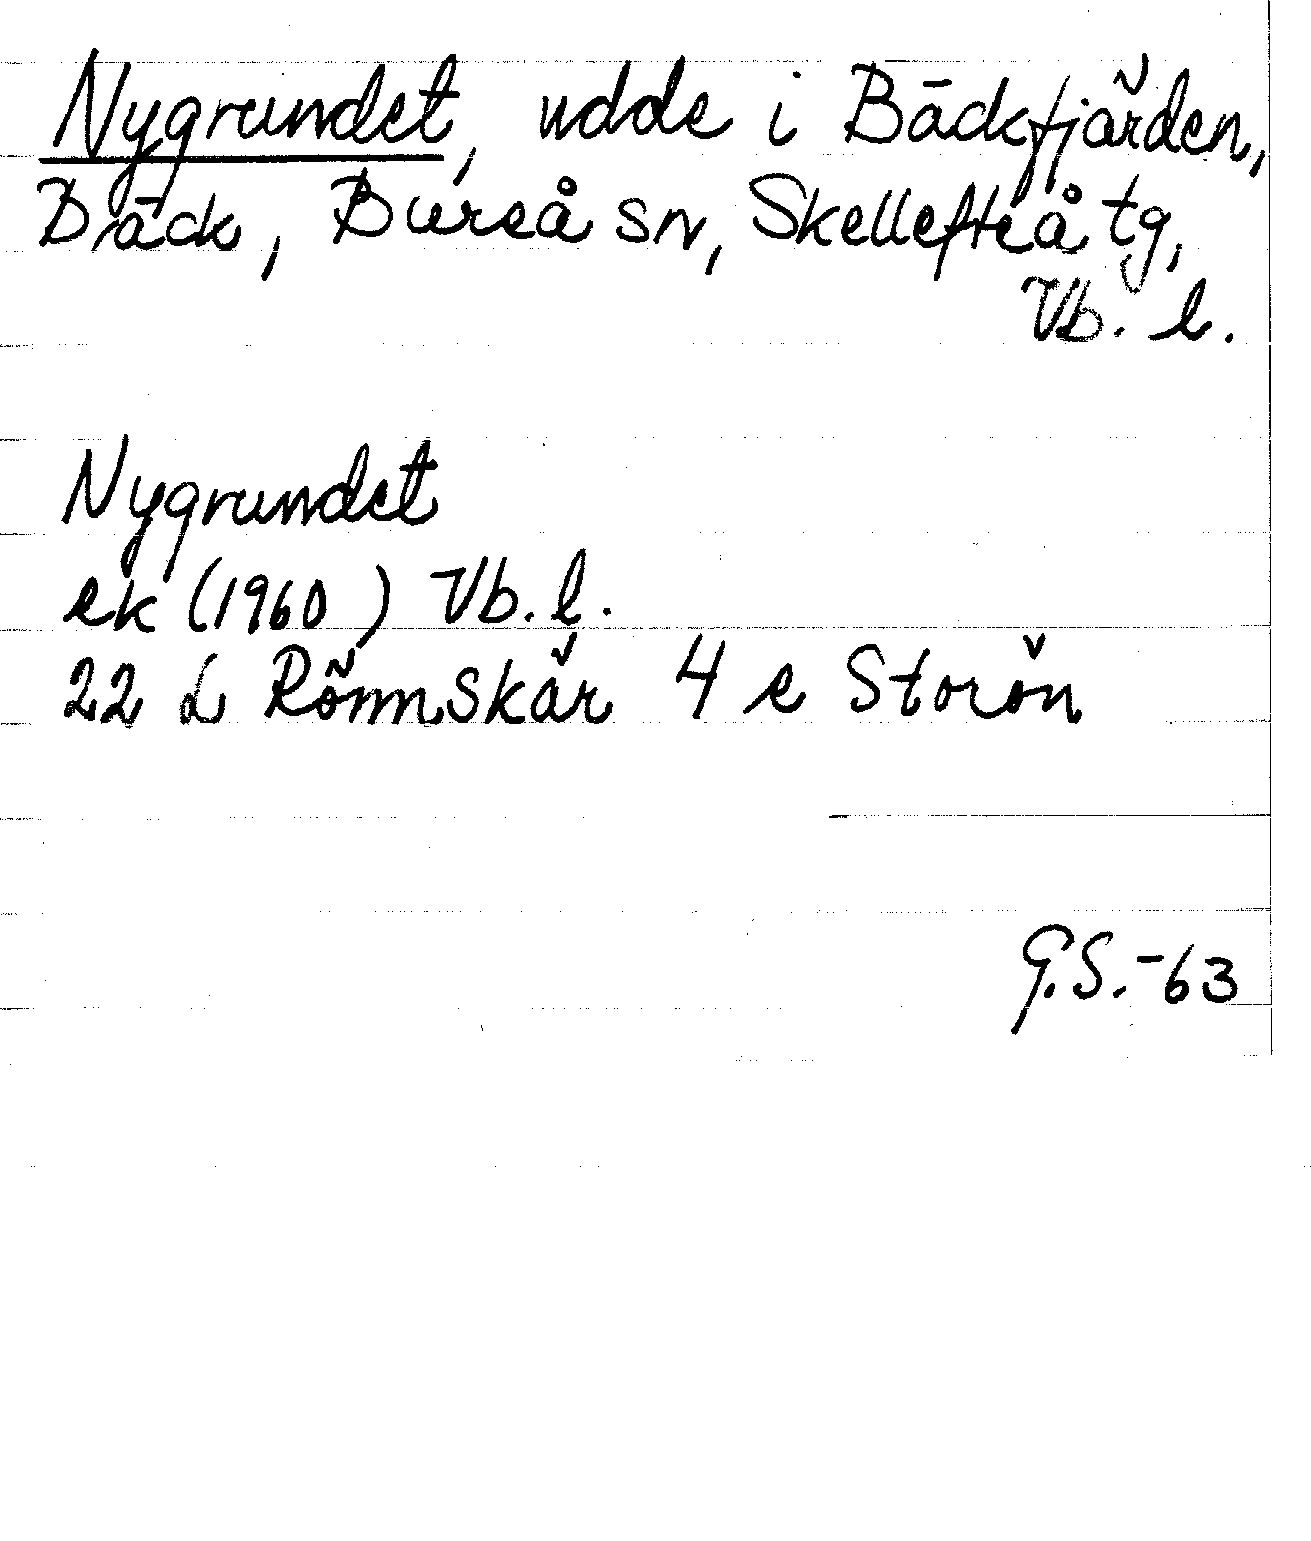 Nygrundet, udde i Bäckfjärden,
Bäck, Bureå sn, Skellefteå tg,
Vb. l.
Nygrundet
ek (1960) Vb. l.
22 L Rönnskär 4 e Storön
G.S.-63